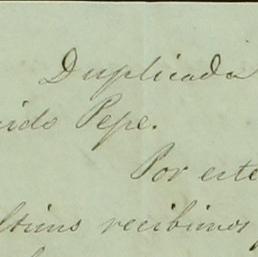 Duplicada
ido Pepe.
Por este
ltimo recibimos